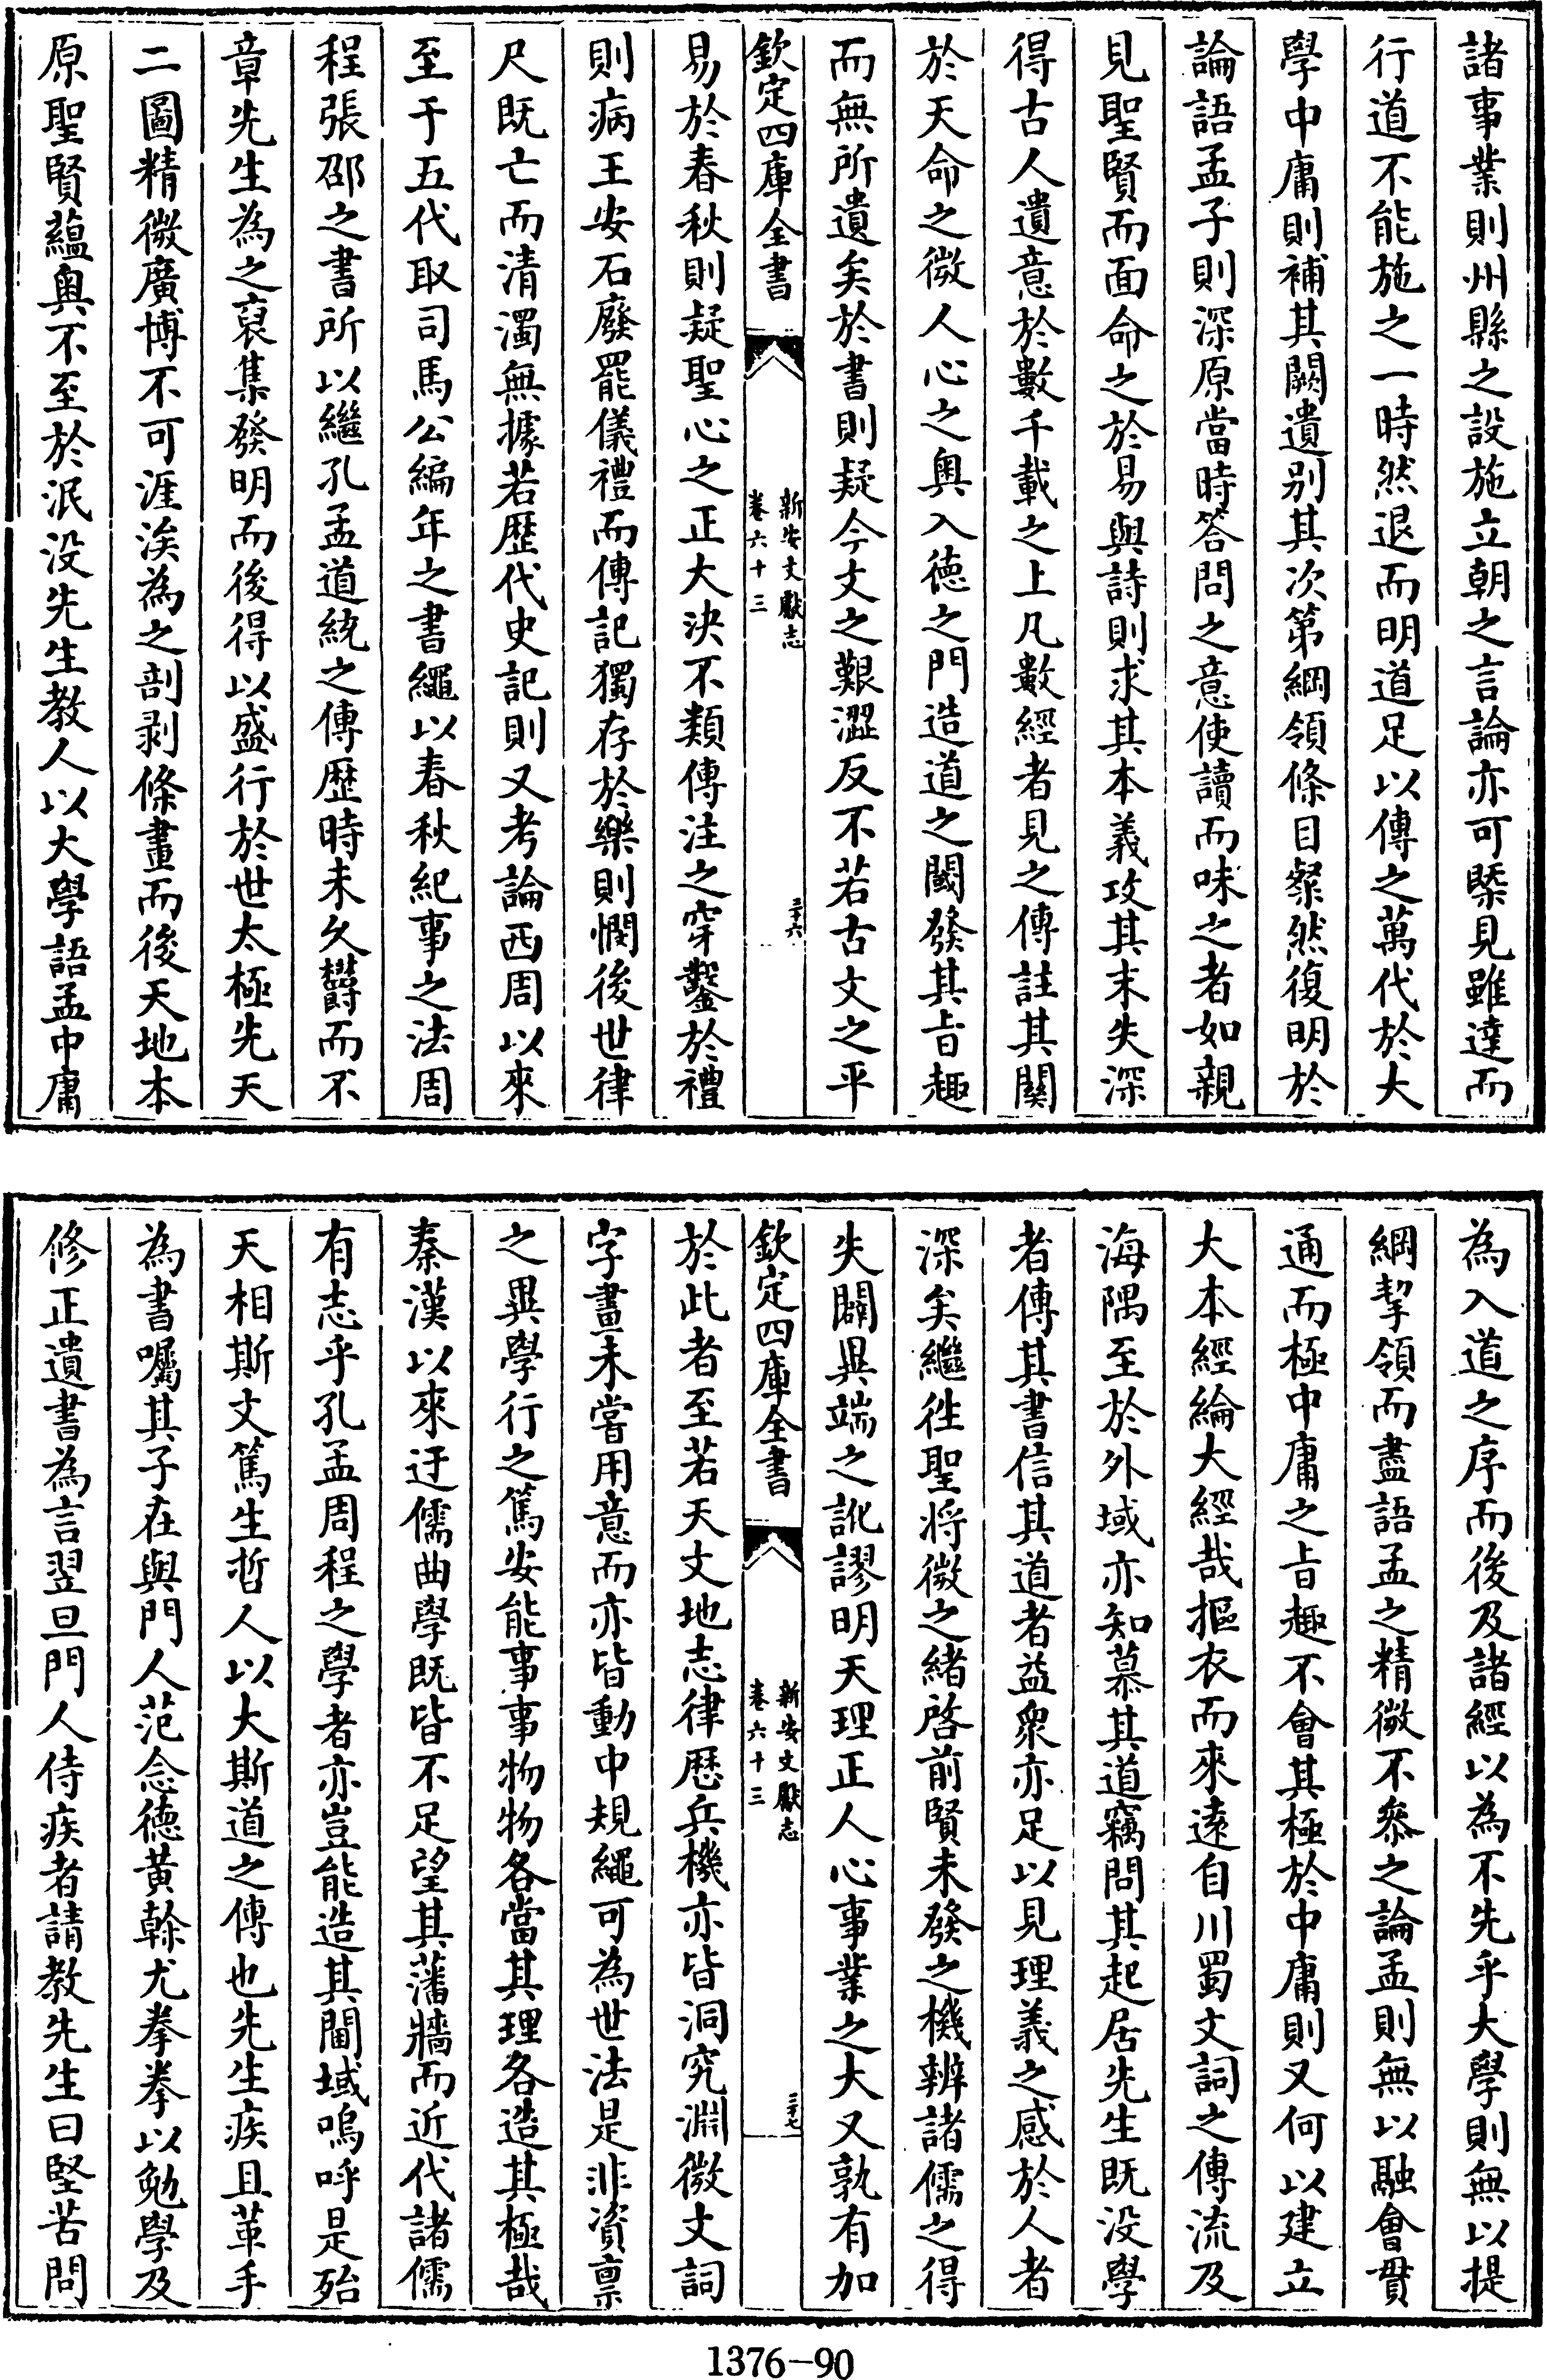 諸事業則州縣之設施立朝之言論亦可槩見雖達而
行道不能施之一時然退而明道足以傳之萬代於大
學中庸則補其闕遺别其次第綱領條目粲然復明於
論語孟子則深原當時答問之意使讀而味之者如親
見聖賢而面命之於易與詩則求其本義攻其末失深
得古人遺意於數千載之上凡數經者見之傳註其關
於天命之微人心之奥入徳之門造道之閾發其㫖趣
而無所遺矣於書則疑今文之艱澀反不若古文之平
欽定四庫全書
新安文獻志
卷六十三
三十六
易於春秋則疑聖心之正大決不類傳注之穿鑿於禮
則病王安石廢罷儀禮而傳記獨存於樂則憫後世律
尺既亡而清濁無據若歴代史記則又考論西周以來
至于五代取司馬公編年之書繩以春秋紀事之法周
程張邵之書所以繼孔孟道統之傳歴時未久欝而不
章先生為之裒集發明而後得以盛行於世太極先天
二圖精微廣博不可涯涘為之剖剥條畫而後天地本
原聖賢藴奥不至於泯没先生教人以大學語孟中庸
為入道之序而後及諸經以為不先乎大學則無以提
綱挈領而盡語孟之精微不叅之論孟則無以融會貫
通而極中庸之㫖趣不會其極於中庸則又何以建立
大本經綸大經哉摳衣而來逺自川蜀文詞之傳流及
海隅至於外域亦知慕其道竊問其起居先生既没學
者傳其書信其道者益衆亦足以見理義之感於人者
深矣繼徃聖将微之緒啓前賢未發之機辨諸儒之得
失闢異端之訛謬明天理正人心事業之大又孰有加
欽定四庫全書
新安文獻志
卷六十三
三十七
於此者至若天文地志律厯兵機亦皆洞究淵微文詞
字畫未嘗用意而亦皆動中規繩可為世法是非資禀
之異學行之篤安能事事物物各當其理各造其極哉
秦漢以來迂儒曲學既皆不足望其藩牆而近代諸儒
有志乎孔孟周程之學者亦豈能造其閫域嗚呼是殆
天相斯文篤生哲人以大斯道之傳也先生疾且革手
為書囑其子在與門人范念徳黄榦尤拳拳以勉學及
修正遺書為言翌旦門人侍疾者請教先生曰堅苦問
1376-90